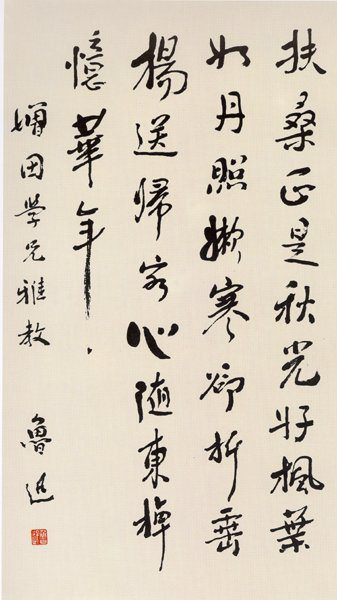 扶桑正是秋光好楓葉
如丹照嫩寒卻折垂
楊送歸客心随東棹
憶華年
增田学兄雅教
魯迅